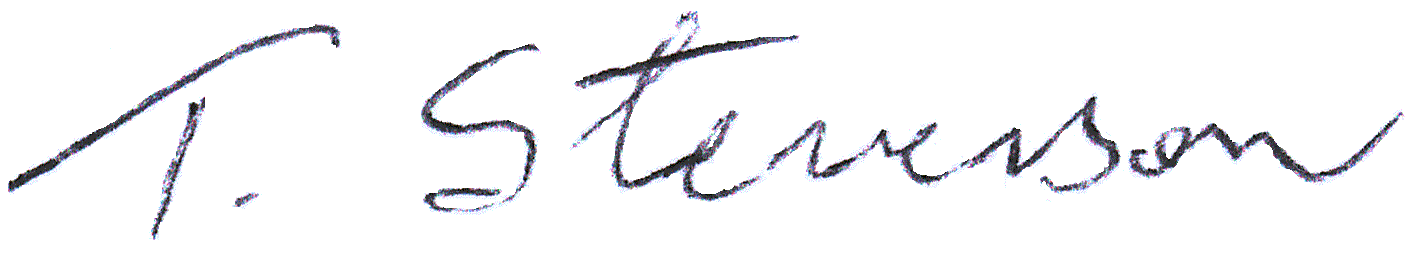 T. Steverson